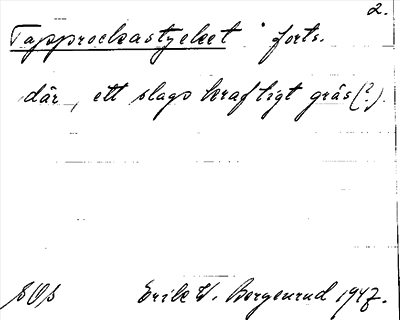 2.
Tapprockastycket forts.
där, ett slags kraftigt gräs (?).
SOS Erik W. Borgenrud 1947.